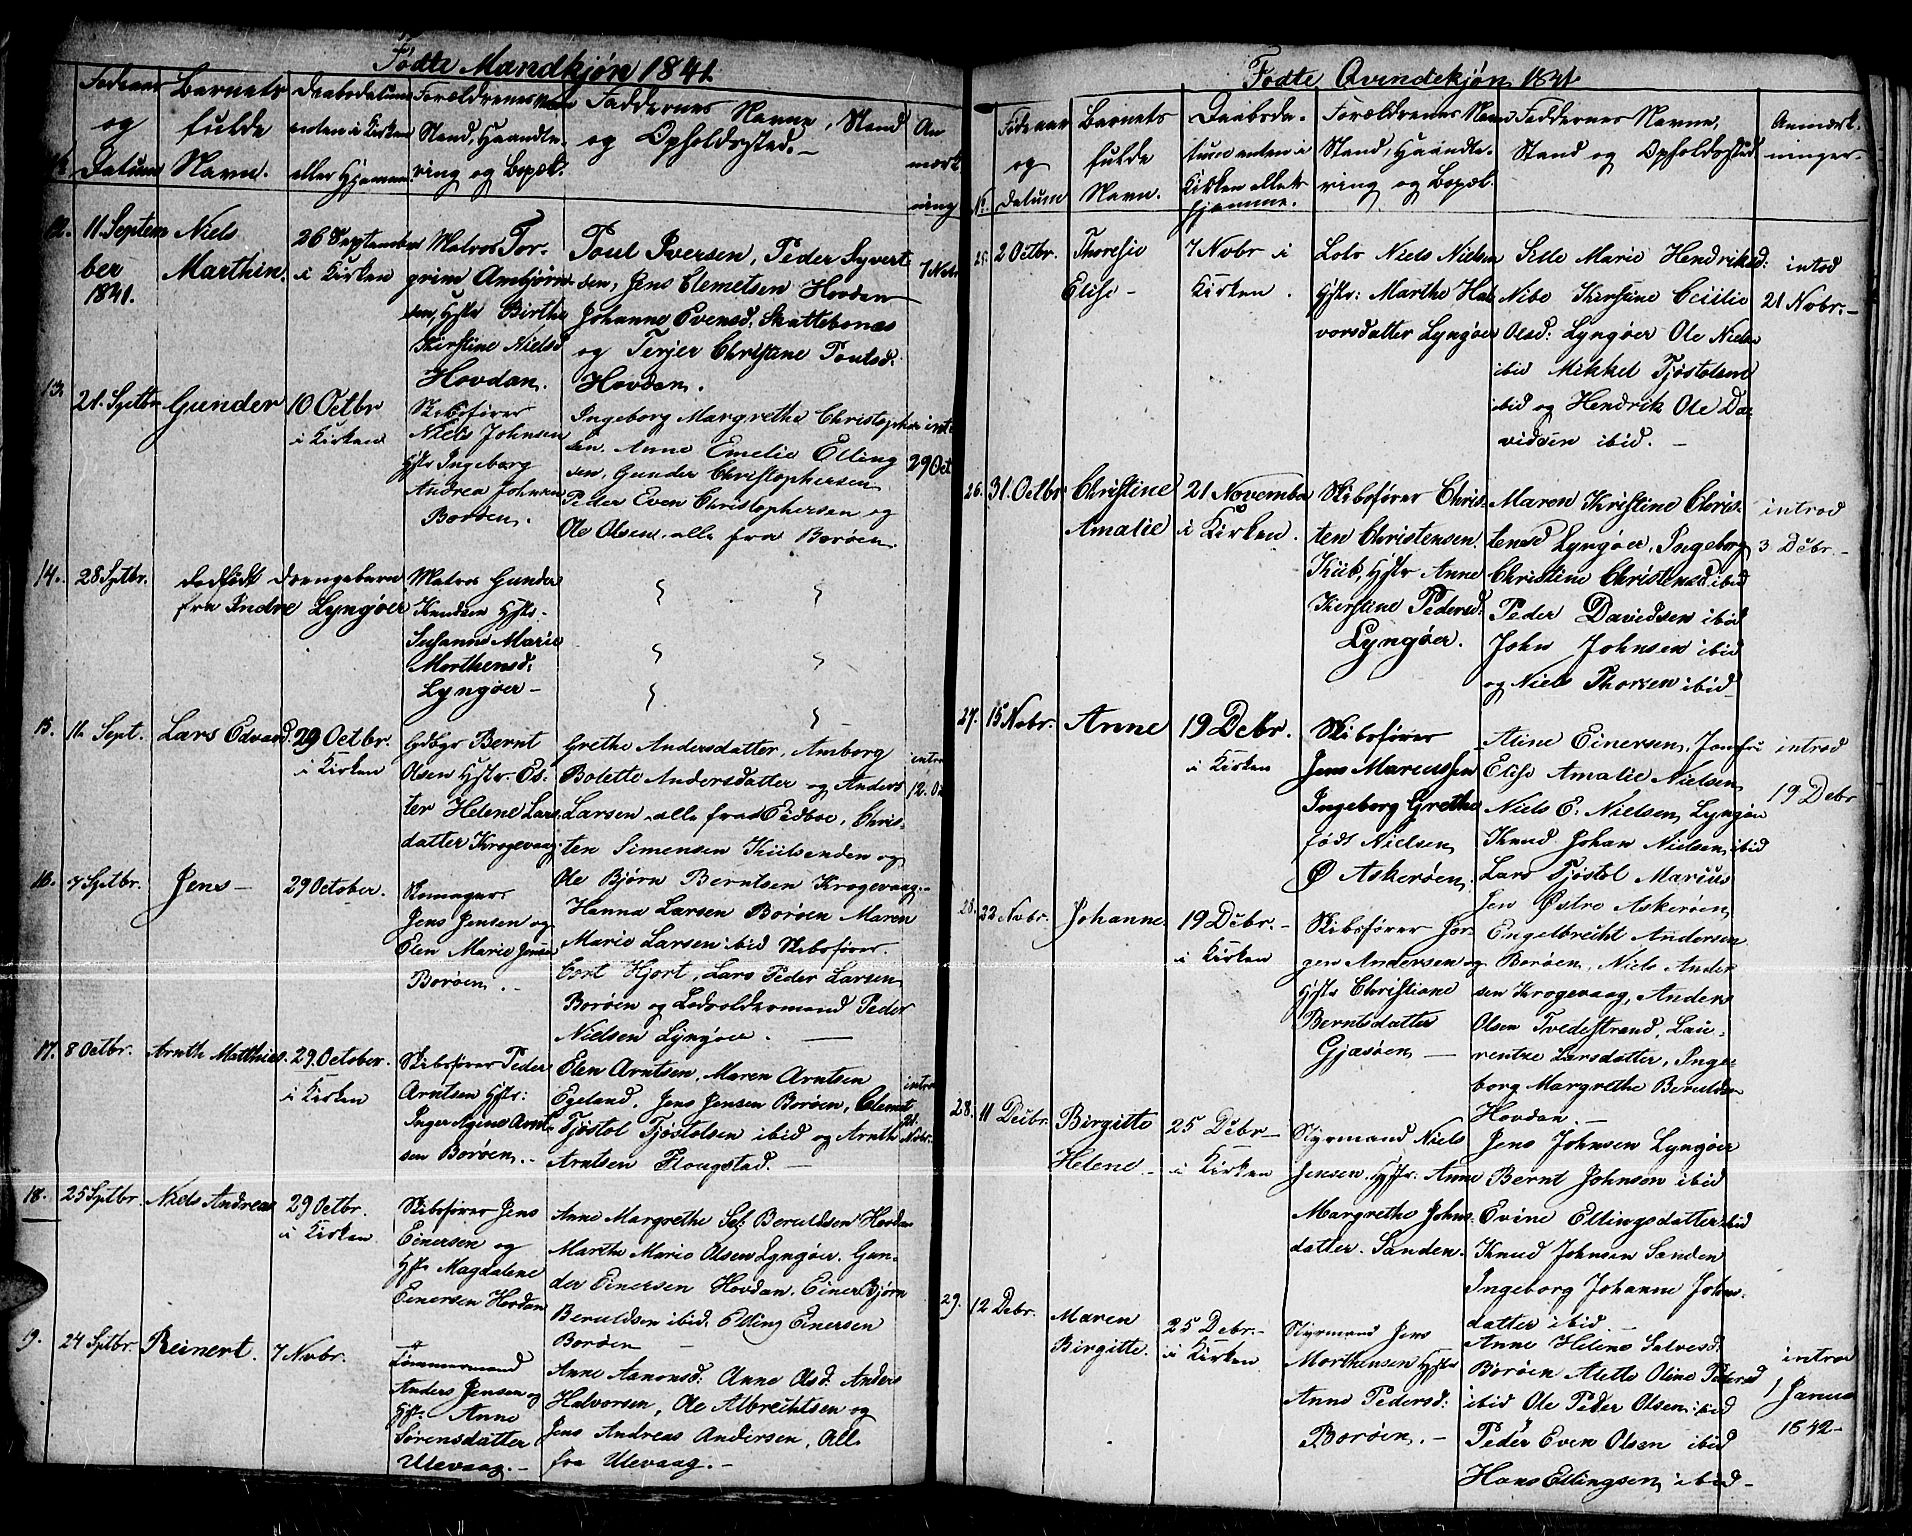 Fødte Mandkjøn 1841.
Fødeaar og Datum
Barnets fulde Navn.
Daabsdatum enten i Kirken eller Hjemme
Forældrenes Navn Stand, Haandtering og Bopæl.
Faddernes Navne, Stand og Opholdssted.
Anmærkning
12.
11 September 1841.
Niels Marthin.
26 September
i Kirken
Matros Tor-
grim Ambjørn-
sen, Hstr Birthe
Kirstine Nielsd
Hovdan.
Poul Iversen, Peder Syvert
sen, Jens Clemetsen Hovdan
Johanne Evensd. Skattebonæs
og Terjer Christine Poulsd.
Hovdan.
7 Nobr
13.
21. Sptbr
Gunder
10 Octbr
i Kirken
Skibsfører
Niels Johnsen
Hstr Ingeborg
Andrea Johnsen
Borøen.
Ingeborg Margrethe Christopher
sen. Anne Emelie Elling
sen, Gunder Christophersen
Peder Even Christophersen og
Ole Olsen, alle fra Borøen.
intr
29 Oct
14.
28 Sptbr.
dødfødt Drengebarn
fra Indre Lyngøer
Matros Gunder
Knudsen Hstr.
Susanne Marie
Morthensd:
Lyngøer -
15.
11 Sept.
Lars Edvard.
29 Octbr.
i Kirken
Gdbgr Bernt
Olsen Hstr. Es-
ter Helene Lars
datter Krogevaag
Grethe Andersdatter, Amborg
Bolette Andersdatter og Anders
Larsen, alle fra Eidboe, Chris-
ten Simensen Kiilsenden og
Ole Bjørn Berntsen Krogevaag.
intro
12. Oc
16.
7 Sptbr.
Jens -
29 October.
Skomager
Jens Jensen og
Elen Marie Jensen
Borøen. -
Hanna Larsen Borøen Maren
Marie Larsen ibid Skibsfører
Cort Hjort, Lars Peder Larsen
Borøen og Lodsoldermand Peder
Nielsen Lyngøer. -
17.
8 Octbr.
Arnth Matthias.
29 October.
i Kirken
Skibsfører Peder
Arntsen Hstr:
Inger Agine Arnt-
sen Borøen. -
Elen Arntsen, Maren Arntsen
Egeland, Jens Jensen Borøen, Clemet
Tjøstol Tjøstolsen ibid og Arnth
Arntsen Flougstad. -
intro
21. Nobr.
18.
25 Sptbr
Niels Andreas
29 Octbr.
i Kirken
Skibsfører Jens
Einersen og
Hstr Magdalene
Einersen Hovdan
Anne Margrethe Sef. Beruldsen Hovdan
Marthe Marie Olsen Lyngøer. Gun-
der Einersen Hovdan, Einer Bjørn
Beruldsen ibid. Elling Einersen
Borøen
19.
24 Sptbr
Reinert.
7 Nobr.
Tømmermand
Anders Jensen og
Hstr. Anne
Sørensdatter
Ulevaag. -
Anne Aanonsd: Anne Olsd. Anders
Halvorsen, Ole Albrechtsen og
Jens Andreas Andersen, Alle
fra Ulevaag. -
Fødte Qvindekjøn 1841
No
Fødeaar og Datum
Barnets fulde Navn.
Daabsdatum enten i Kirken eller hjemme.
Forældrenes Navn Stand, Haandtering og Bopæl.
Faddernes Navne, Stand og Opholdssted
Anmærkninger.
25.
2 Octbr.
Thoresie
Elise -
7 Nobr i
Kirken.
Lods Niels Nielsen
Hstr: Marthe Hal
vorsdatter Lyngøer
Sille Marie Hendriksd:
Nibe Kirstine Cecilie
Olsd: Lyngøer Ole Nielsen
ibid Mikkel Tjøstolsen
ibid og Hendrik Ole Da-
vidsen ibid. -
introd
21 Nobr. -
26.
31. Octbr
Christine
Amalie
21 November
i Kirken.
Skibsfører Chris-
ten Christensen
Kiik, Hstr Anne
Kirstine Pedersd:
Lyngøer.
Maren Kirstine Chris-
tensd Lyngøer, Ingeborg
Christine Christensd. ibid
Peder Davidsen ibid
John Johnsen ibid
og Niels Thorsen ibid
introd
3 Debr. -
27.
15 Nobr.
Anne
19 Debr.
i Kirken
Skibsfører
Jens Marcussen
Ingeborg Grethe
født Nielsen
Ø Askerøen.
Aline Einersen, Jomfr:
Elise Amalie Nielsen
Niels E. Nielsen Lyngøer
Knud Johan Nielsen ibid
Lars Tjøstol Marius
Jen Østre Askerøen
introd
19 Debr
28.
22 Nobr.
Johanne
19 Debr. -
i Kirken
Skibsfører Jør-
gen Andersen og
Hstr Christiane
Berntsdatter
Gjæsøen -
Engelbrecht Andersen
Borøen, Niels Ander
sen Krogevaag, Anders
Olsen Tvedestrand, Lau-
rentze Larsdatter, Inge-
borg Margrethe Berulds
Hovdan. -
28.
11 Decbr.
Birgitte
Helene -
25 Debr -
i Kirken
Styrmand Niels
Jensen, Hstr: Anne
Margrethe Johns-
datter. Sanden.
Jens Johnsen Lyngøer
Bernt Johnsen ibid
Evine Ellingsdatter ibid
Knud Johnsen Sanden
Ingeborg Johanne Johns-
datter ibid -
29.
12 Debr.
Maren
Birgitte.
25 Debr. -
i Kirken
Styrmand Jens
Morthensen Hstr
Anne Pedersd:
Borøen. -
Anne Helene Salvesd.
Borøen Alette Oline Pedersd
ibid Ole Peder Olsen ibid
Peder Even Olsen ibid
Hans Ellingsen ibid -
introd
1 Janua
1842 -